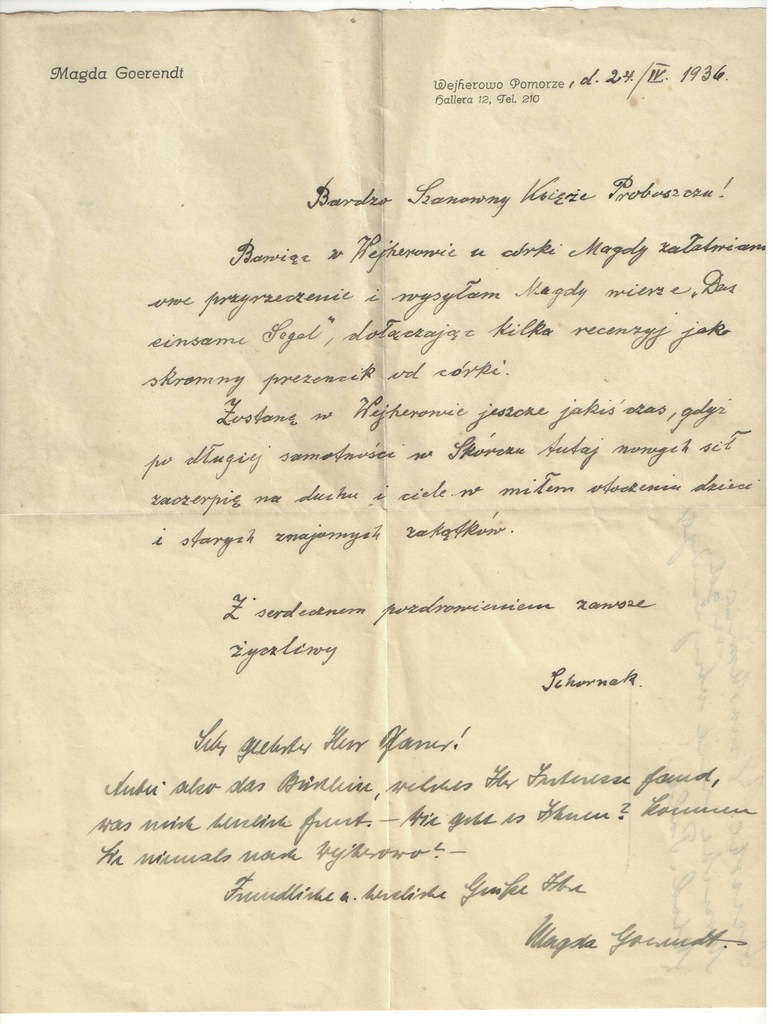 Magda Goerendt
Wejherowo Pomorze, d. 24./IV. 1936.
Hallera 12, Tel. 210
Bardzo Szanowny Księże Proboszczu!
Bawiąc w Wejherowie u córki Magdy załatwiam
owe przyrzeczenie i wysyłam Magdy wiersze „Das
einsame Segel", dołączając kilka recenzyj jako
skromny prezencik od córki.
Zostanę w Wejherowie jeszcze jakiś czas, gdyż
po długiej samotności w Skórczu tutaj nowych sił
zaczerpię na duchu i ciele w miłem otoczeniu dzieci
i starych znajomych zakątków.
Z serdecznem pozdrowieniem zawsze
życzliwy
Schornak.
Sehr geehrter Herr Pfarrer!
Anbei also das Büchlein, welches Ihr Interesse fand,
was mich herzlich freut. – Wie geht es Ihnen? Kommen
Sie niemals nach Wejherowo? –
Freundliche u. herzliche Grüße Ihre
Magda Goerendt.